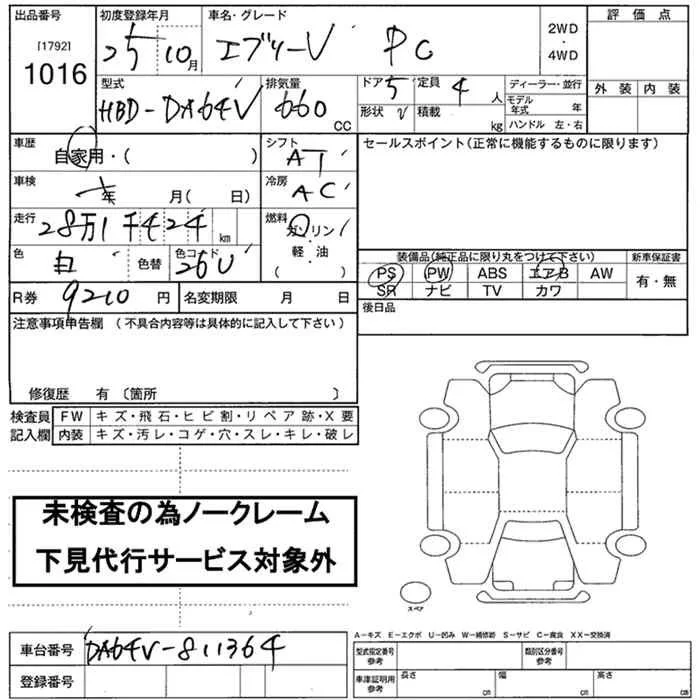 出品番号 初度登録年月 車名・グレード 評価点
[1792] 25 10月 エブリーV PC 2WD・4WD
1016 型式 排気量 ドア 5 定員 4人 ディーラー・並行 外装 内装
HBD-DA64V 660 CC 形状 V 積載 kg モデル年式 年
ハンドル 左・右
車歴 自家用・( ) シフト AT セールスポイント(正常に機能するものに限ります)
車検 年 月( 日) 冷房 AC
走行 28万1千424 km 燃料 ガソリン
軽・油
( )
色 白 色替 色コード 26U 装備品(純正品に限り丸をつけて下さい) 新車保証書
PS PW ABS エアB AW 有・無
SR ナビ TV カワ
R券 9210円 名変期限 月 日 後日品
注意事項申告欄 (不具合内容等は具体的に記入して下さい)
修復歴 有 〔箇所 〕
検査員 FW キズ・飛石・ヒビ割・リペア跡・X要
記入欄 内装 キズ・汚レ・コゲ・穴・スレ・キレ・破レ
未検査の為ノークレーム
下見代行サービス対象外
スペア
A-キズ E-エクボ U-凹み W-補修跡 S-サビ C-腐食 XX-交換済
車台番号 DA64V-811364 型式指定番号 参考 類別区分番号 参考
登録番号 車庫証明用 参考 長さ cm 幅 cm 高さ cm